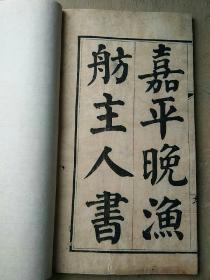 嘉平晚漁
舫主人書